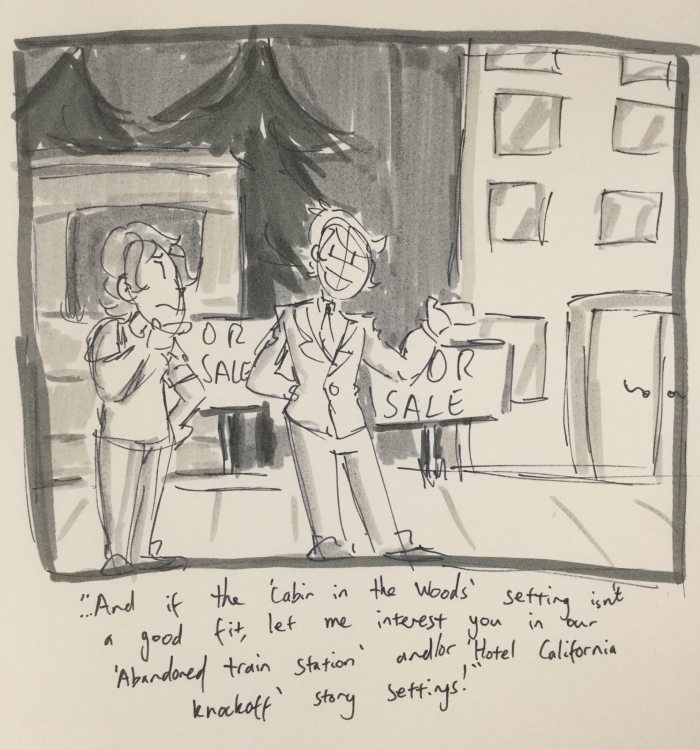 OR
SALE
OR
SALE
"...And if the 'Cabin in the Woods' setting isn't
a good fit, let me interest you in our
'Abandoned train station' and/or 'Hotel California
knockoff' story settings!"